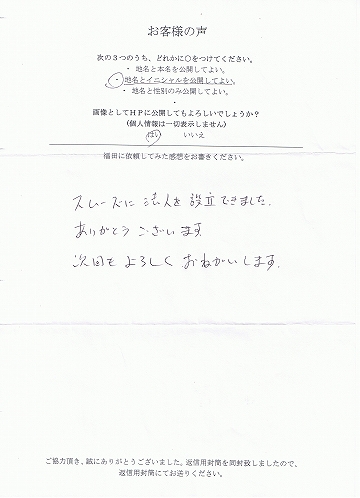 お客様の声
次の３つのうち、どれかに〇をつけてください。
・ 地名と本名を公開してよい。
・ 地名とイニシャルを公開してよい。
・ 地名と性別のみ公開してよい。
・
画像としてＨＰに公開してもよろしいでしょうか？
（個人情報は一切表示しません）
はい　　いいえ
福田に依頼してみた感想をお書きください。
スムーズに法人を設立できました。
ありがとうございます。
次回もよろしくおねがいします。
ご協力頂き、誠にありがとうございました。返信用封筒を同封致しましたので、
返信用封筒にてお送りください。